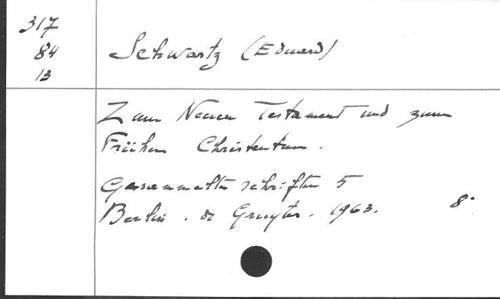 317
84
13
Schwartz (Eduard)
Zum Neuen Testament und zum
Frühen Christentum.
Gesammelte schriften 5
Berlin. de Gruyter. 1963. 8°